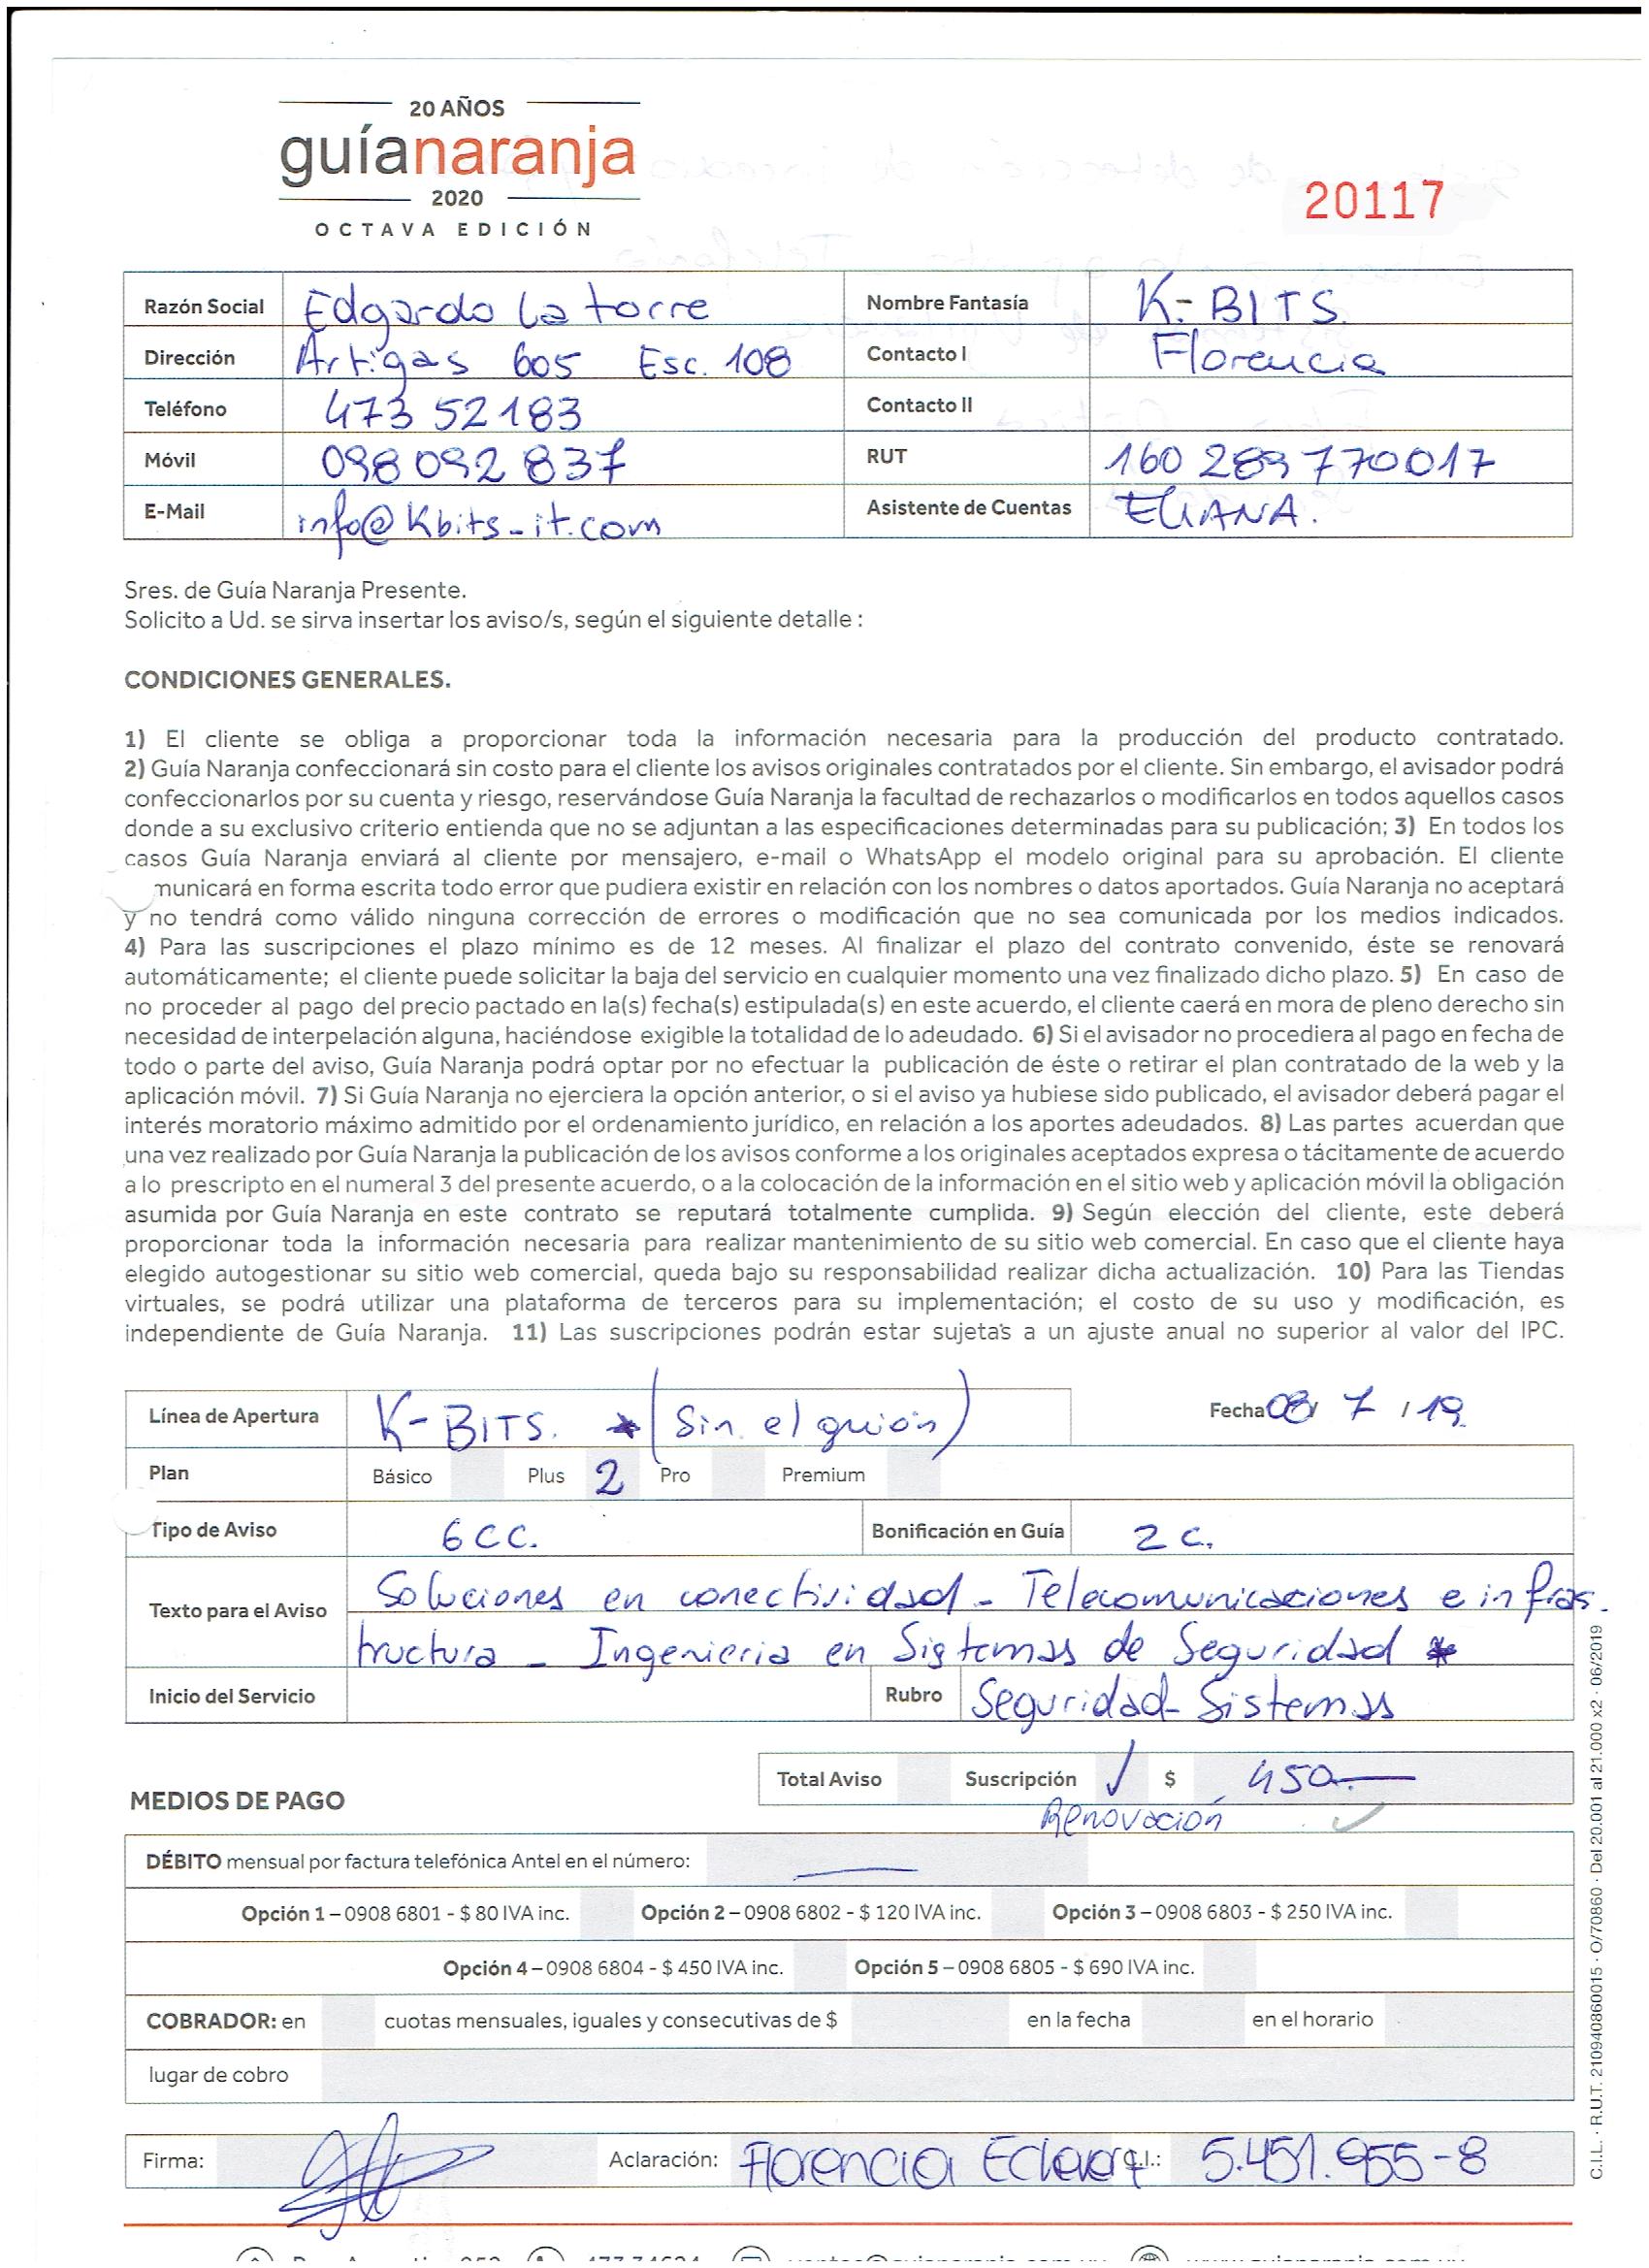 20 AÑOS
guíanaranja
2020
OCTAVA EDICIÓN
20117
Razón Social Edgardo Latorre Nombre Fantasía K-BITS.
Dirección Artigas 605 Esc. 108 Contacto I Florencia
Teléfono 473 52183 Contacto II
Móvil 098 092 837 RUT 160 289770017
E-Mail info@Kbits-it.com Asistente de Cuentas ELIANA.
Sres. de Guía Naranja Presente.
Solicito a Ud. se sirva insertar los aviso/s, según el siguiente detalle :
CONDICIONES GENERALES.
1) El cliente se obliga a proporcionar toda la información necesaria para la producción del producto contratado.
2) Guía Naranja confeccionará sin costo para el cliente los avisos originales contratados por el cliente. Sin embargo, el avisador podrá
confeccionarlos por su cuenta y riesgo, reservándose Guía Naranja la facultad de rechazarlos o modificarlos en todos aquellos casos
donde a su exclusivo criterio entienda que no se adjuntan a las especificaciones determinadas para su publicación; 3) En todos los
casos Guía Naranja enviará al cliente por mensajero, e-mail o WhatsApp el modelo original para su aprobación. El cliente
municará en forma escrita todo error que pudiera existir en relación con los nombres o datos aportados. Guía Naranja no aceptará
y no tendrá como válido ninguna corrección de errores o modificación que no sea comunicada por los medios indicados.
4) Para las suscripciones el plazo mínimo es de 12 meses. Al finalizar el plazo del contrato convenido, éste se renovará
automáticamente; el cliente puede solicitar la baja del servicio en cualquier momento una vez finalizado dicho plazo. 5) En caso de
no proceder al pago del precio pactado en la(s) fecha(s) estipulada(s) en este acuerdo, el cliente caerá en mora de pleno derecho sin
necesidad de interpelación alguna, haciéndose exigible la totalidad de lo adeudado. 6) Si el avisador no procediera al pago en fecha de
todo o parte del aviso, Guía Naranja podrá optar por no efectuar la publicación de éste o retirar el plan contratado de la web y la
aplicación móvil. 7) Si Guía Naranja no ejerciera la opción anterior, o si el aviso ya hubiese sido publicado, el avisador deberá pagar el
interés moratorio máximo admitido por el ordenamiento jurídico, en relación a los aportes adeudados. 8) Las partes acuerdan que
una vez realizado por Guía Naranja la publicación de los avisos conforme a los originales aceptados expresa o tácitamente de acuerdo
a lo prescripto en el numeral 3 del presente acuerdo, o a la colocación de la información en el sitio web y aplicación móvil la obligación
asumida por Guía Naranja en este contrato se reputará totalmente cumplida. 9) Según elección del cliente, este deberá
proporcionar toda la información necesaria para realizar mantenimiento de su sitio web comercial. En caso que el cliente haya
elegido autogestionar su sitio web comercial, queda bajo su responsabilidad realizar dicha actualización. 10) Para las Tiendas
virtuales, se podrá utilizar una plataforma de terceros para su implementación; el costo de su uso y modificación, es
independiente de Guía Naranja. 11) Las suscripciones podrán estar sujetas a un ajuste anual no superior al valor del IPC.
Línea de Apertura K-BITS. * (Sin el guión) Fecha 08/ 7 / 19.
Plan Básico Plus 2 Pro Premium
Tipo de Aviso 6CC. Bonificación en Guía 2 c.
Texto para el Aviso Soluciones en conectividad - Telecomunicaciones e infras-
tructura - Ingenieria en Sistemas de Seguridad *
Inicio del Servicio Rubro Seguridad-Sistemas
Total Aviso Suscripción ✓ $ 450.-
Renovación ✓
MEDIOS DE PAGO
DÉBITO mensual por factura telefónica Antel en el número:
Opción 1 – 0908 6801 - $ 80 IVA inc. Opción 2 – 0908 6802 - $ 120 IVA inc. Opción 3 – 0908 6803 - $ 250 IVA inc.
Opción 4 – 0908 6804 - $ 450 IVA inc. Opción 5 – 0908 6805 - $ 690 IVA inc.
COBRADOR: en cuotas mensuales, iguales y consecutivas de $ en la fecha en el horario
lugar de cobro
Firma: Aclaración: Florencia C.I.: 5.451.955-8
C.I.L. · R.U.T. 210940860015 · O/70860 · Del 20.001 al 21.000 x2 · 06/2019